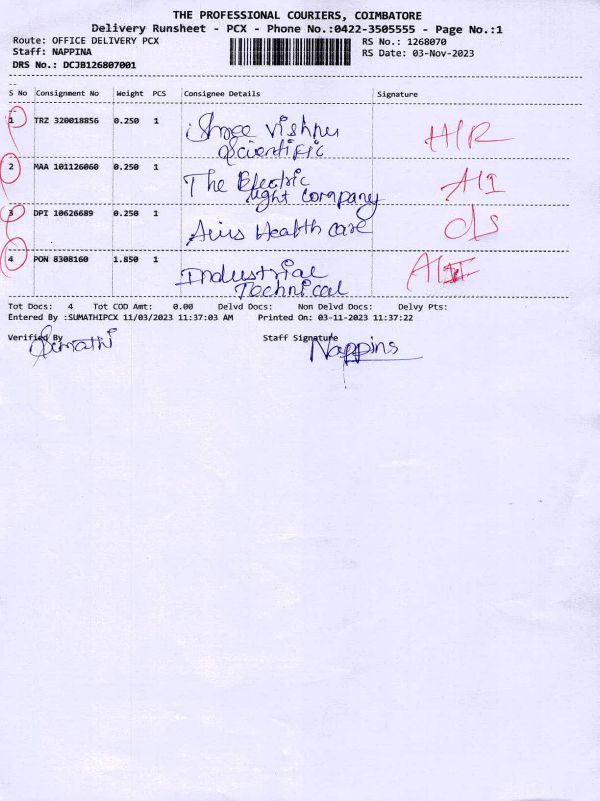 THE PROFESSIONAL COURIERS, COIMBATORE
Delivery Runsheet - PCX - Phone No.:0422-3505555 - Page No.:1
Route: OFFICE DELIVERY PCX RS No.: 1268070
Staff: NAPPINA RS Date: 03-Nov-2023
DRS No.: DCJB126807001
S No Consignment No Weight PCS Consignee Details Signature
1 TRZ 320018856 0.250 1 Shree Vishnu
Scientific
2 MAA 101126060 0.250 1 The Electric
light company
3 DPI 10626689 0.250 1 Health care
4 PON 8308160 1.850 1 Industrial
Technical
Tot Docs: 4 Tot COD Amt: 0.00 Delvd Docs: Non Delvd Docs: Delvy Pts:
Entered By :SUMATHIPCX 11/03/2023 11:37:03 AM Printed On: 03-11-2023 11:37:22
Verified By Staff Signature
Sumathi Nappins